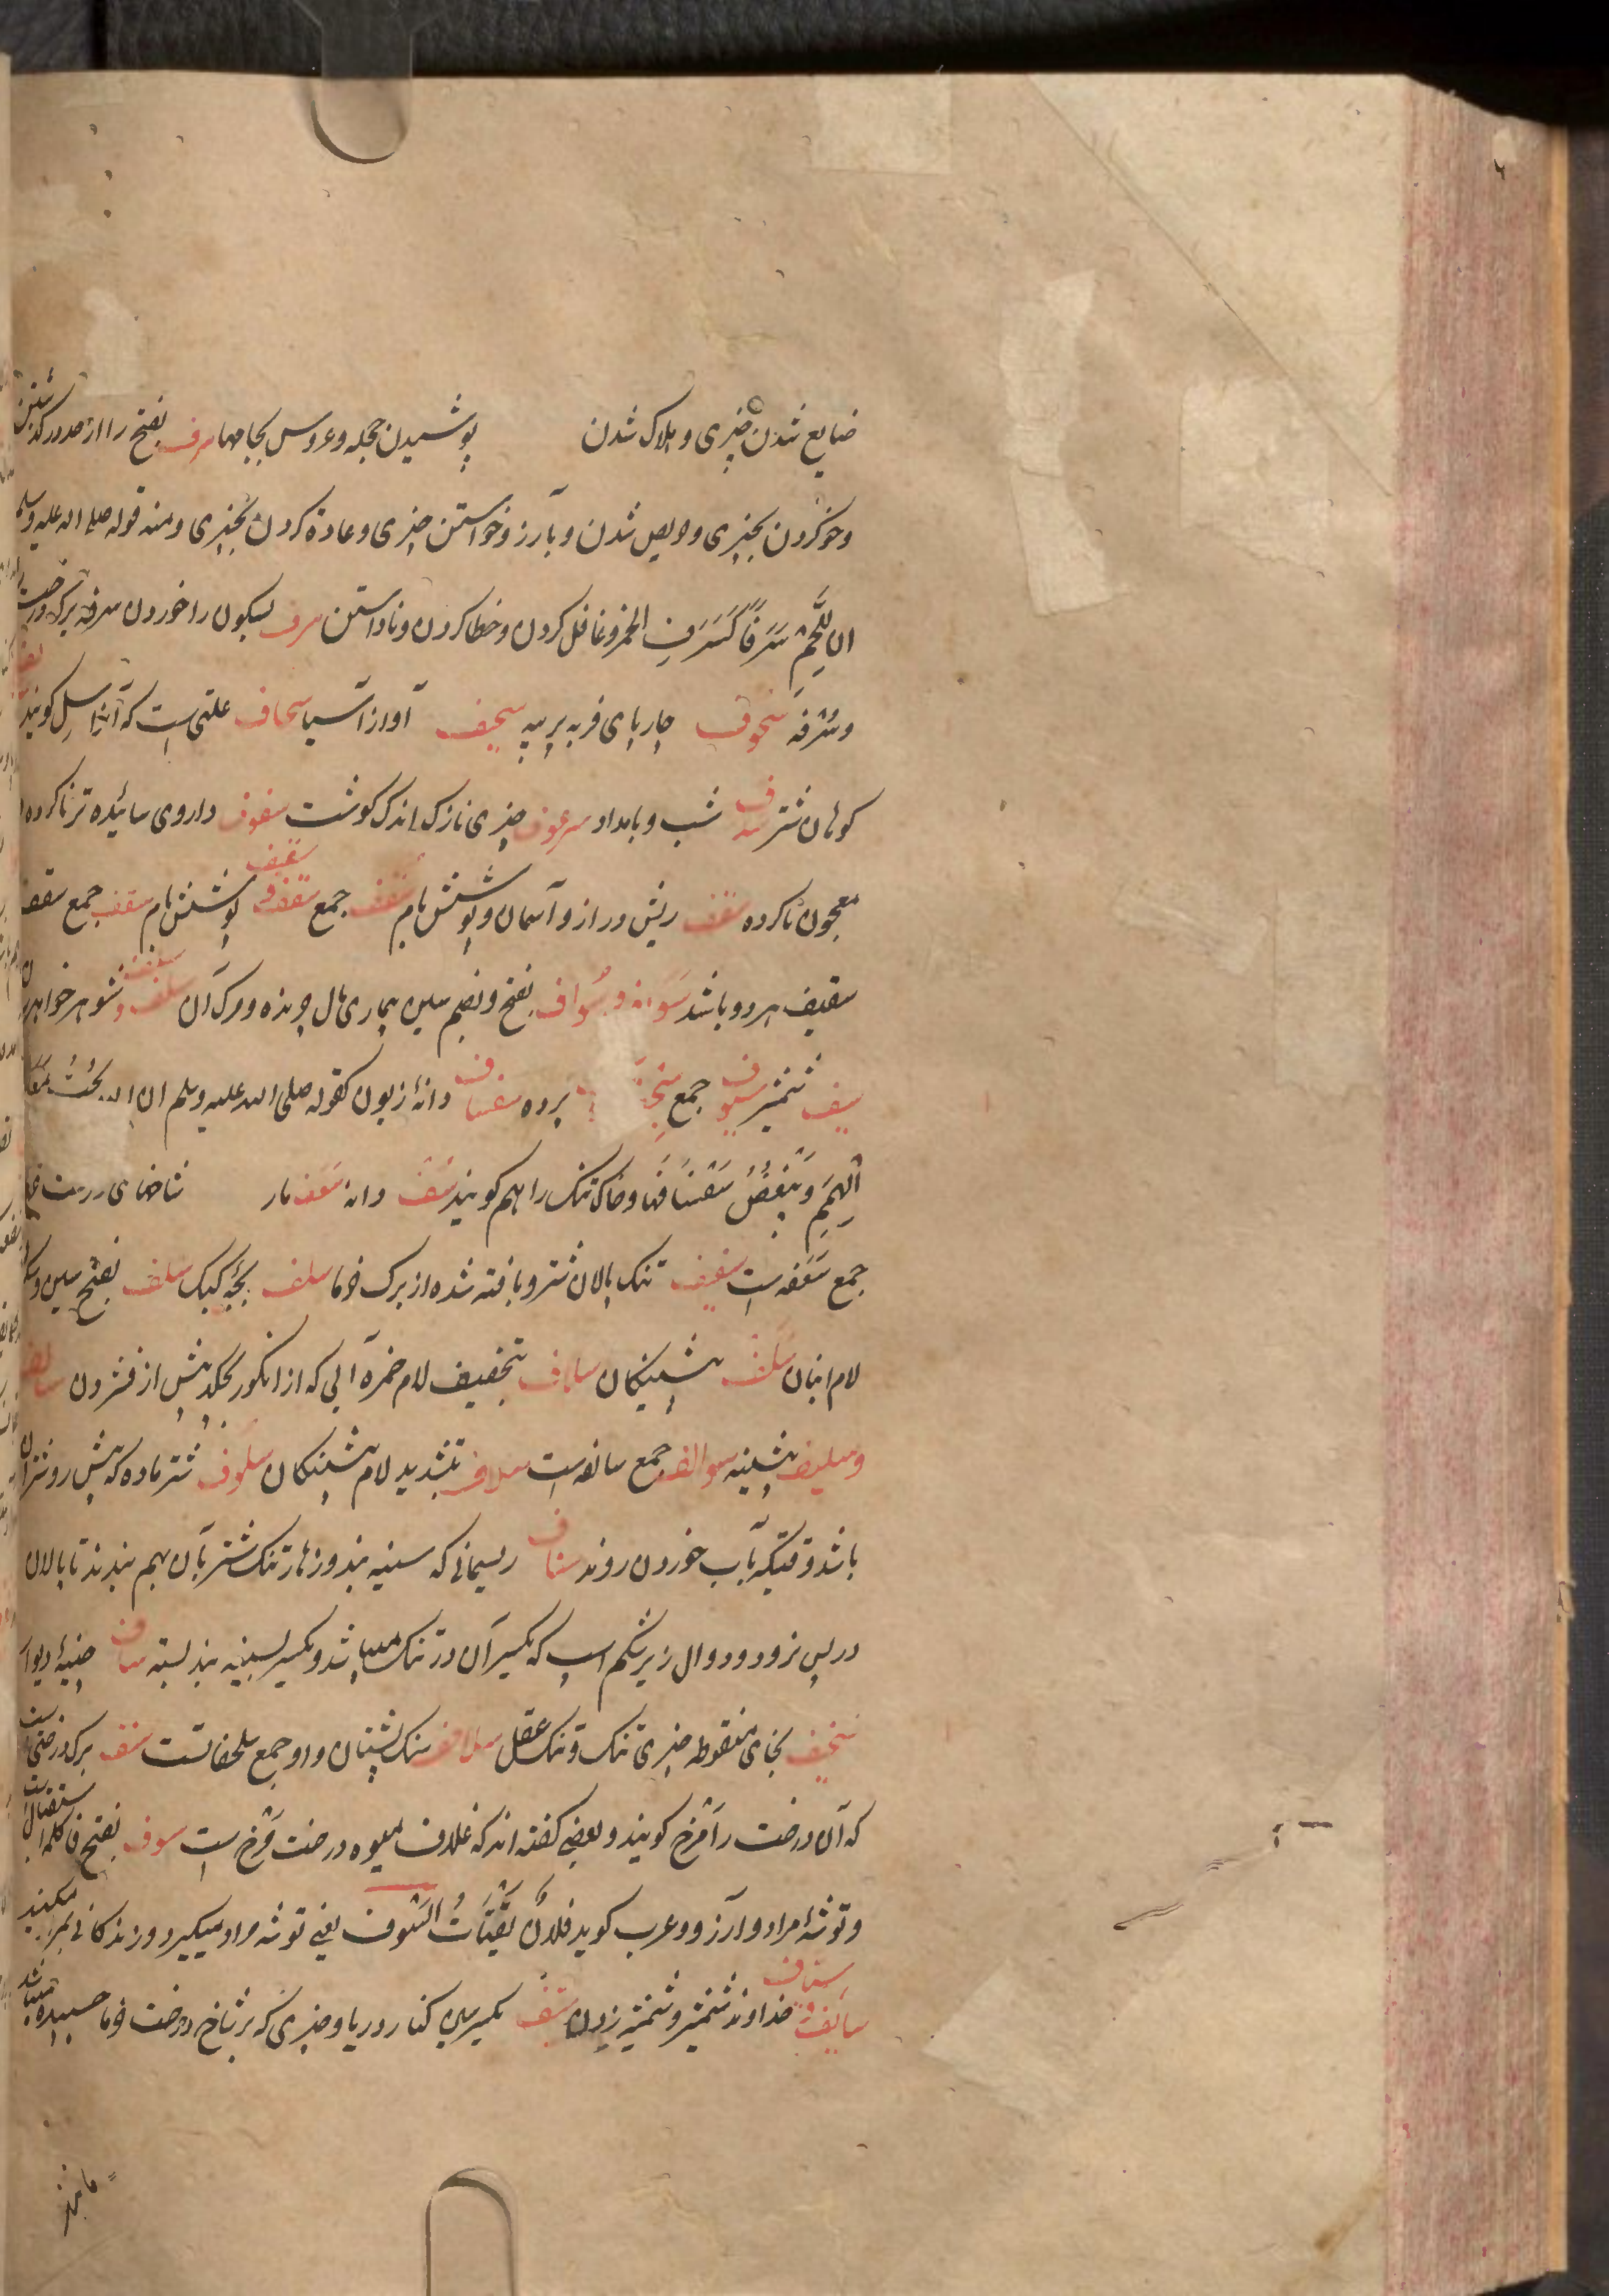 ضایع شدن چیزی و هلاک شدن پوشیدن حجله و عروس بجامها سرف بفتح را از حد درگذشتن
و خو کردن بچیزی و حریص شدن و بآرزو خواستن چیزی و عادة کردن بچیزی و منه قوله صلی الله علیه وسلم
ان للّحم سَرَفًا کَسَرَفِ الخمر و غافل کردن و خطا کردن و نادانستن سرف بسکون را خوردن سرفه برک درخت
و سُرفه سَحوف چارپای فربه پر پیه سحیف آواز آسیا سحاف علتی است که آنرا سِل کویند
کوهان شتر سدف شب و بامداد سرعوف چیزی نازک اندک کوشت سفوف داروی سائیده تر ناکرده
معجون ناکرده سقف ریش دراز و آسمان و پوشش بام سُقف جمع سقف سقیف پوشش بام سقف جمع سقف
سقیف هر دو باشد سَواف و سُواف بفتح و بضم سین بیماری مال چرنده و مرک آن سلف و شوهر خواهر
سیف شمشیر سیوف جمع پرده سفساف دانۀ زبون کقوله صلی الله علیه وسلم ان الله یُحبُّ مَعَالِیَ
الهِمَمِ وَیُبْغِضُ سَفْسَافَها و خاک تنک را هم کویند سَف دانۀ سَف مار شاخهای درخت خرما
جمع سَعَفه است سفیف تنک پالان شتر و بافته شده از برک خرما سلف بچّۀ کبک سلف بفتح سین و سکون
لام انبان سَلَف پیشینکان سلاف بتخفیف لام خمره آبی که از انکور بچکد پیش از فشردن سالف
و سلیف پیشینه سوالف جمع سالفه است سلاف بتشدید لام پیشینکان سلوف شتر ماده که پیش رو شتران
باشد وقتیکه بآب خوردن روند سناف ریسمانی که سینه بند و زهار تنک شتر بآن بهم بندند تا پالان
در پس نرود و دوال زیر شکم اسب که یکسر آن در تنک میباشد و یکسر بسینه بند بسته ساف چینۀ دیوار
سخیف بخای منقوطه چیزی تنک و تنک عقل سلاحف سنک پشتان و او جمع سلحفات است سنف برک درختی است
که آن درخت را مَرْخ کویند و بعضی کفته اند که غلاف میوه درخت مَرْخ است سوف بفتح فا کلمه استقبال است
و توشۀ مراد و آرزو و عرب کوید فلانٌ یَقْتَاتُ السَّوفَ یعنی توشه مراد میکیرد و زندکانی میکند
سائف سیّاف خداوند شمشیر و شمشیر زدن سیف بکسر سین کنار دریا و چیزی که بر شاخ درخت خرما چسبیده میباشد